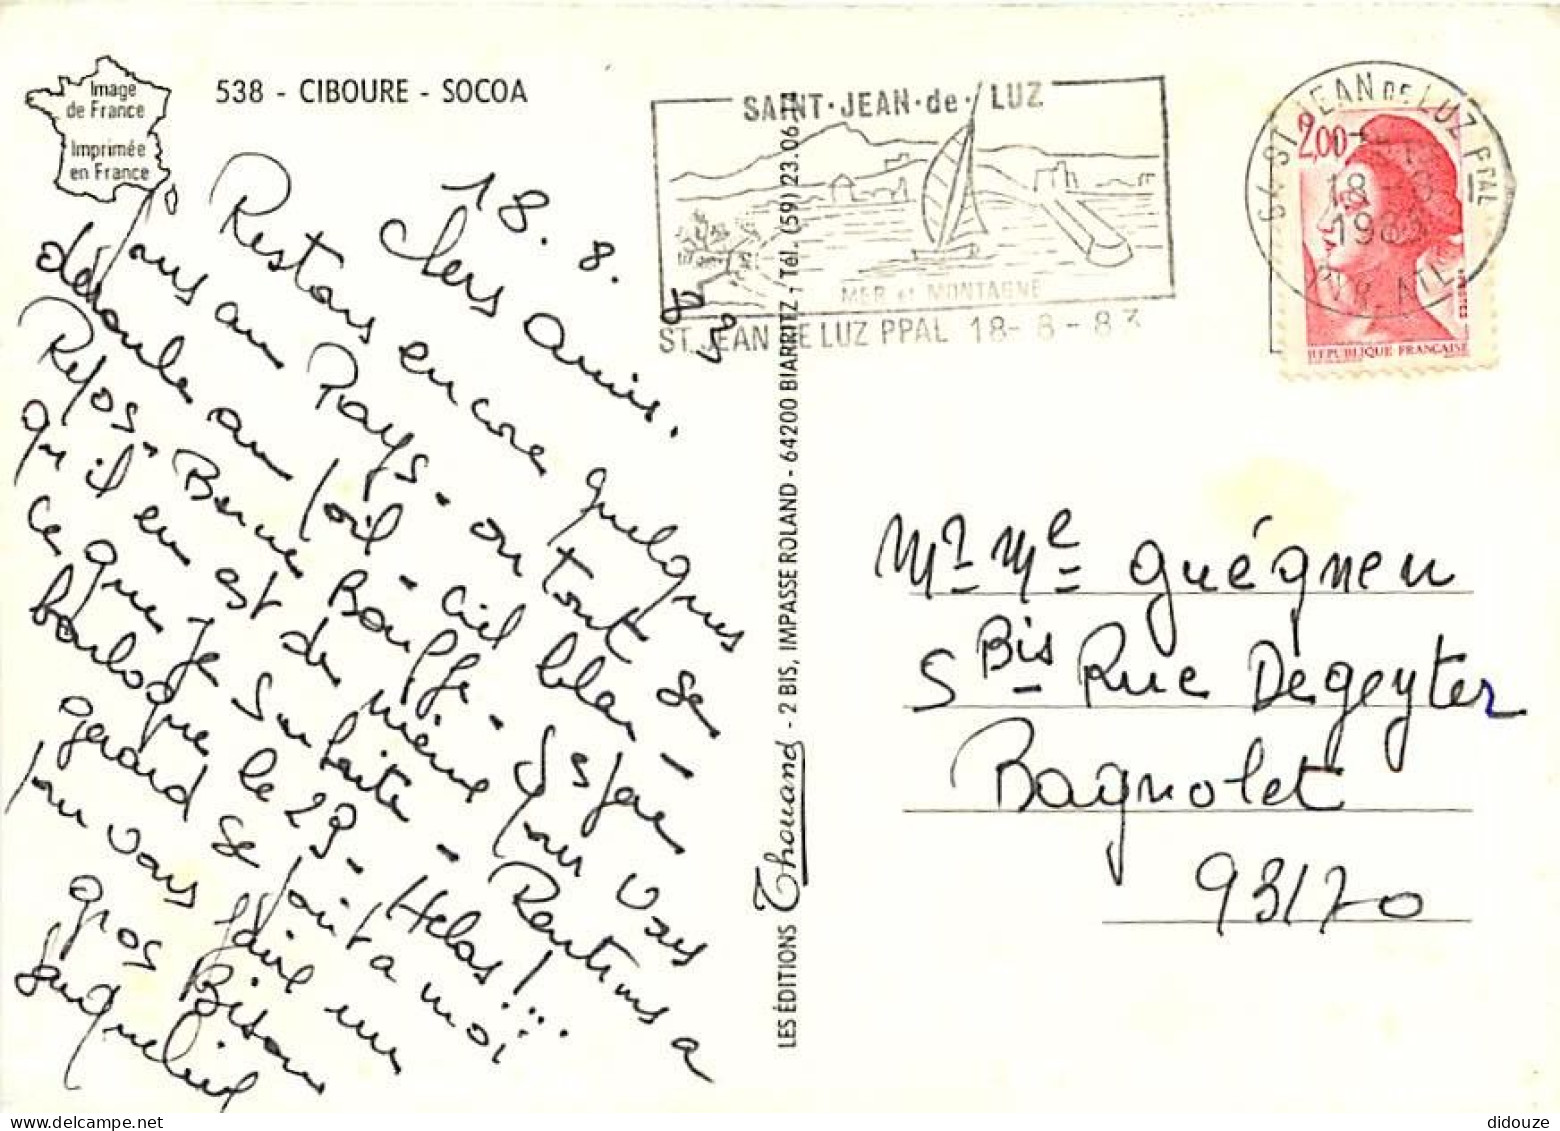 Image
de France
Imprimée
en France
538 - CIBOURE - SOCOA
18. 8. 83
Chers Amis.
Restons encore quelques
jours au Pays - ou tout se
déroule au soleil - ciel bleu -
Repos - Bonne Bouffe - J'espère
qu'il en est de même pour vous
ce que je souhaite - Rentrons a
boulogne le 29 - Helas!...
Gerard se joint a moi
pour vous faire un
gros Bisou
Jacqueline
LES ÉDITIONS Thouand - 2 BIS, IMPASSE ROLAND - 64200 BIARRITZ - Tél. (59) 23.06
SAINT·JEAN·de·LUZ
MER et MONTAGNE
ST JEAN DE LUZ PPAL 18-8-83
64 ST JEAN DE LUZ PPAL
18-8
1983
PYR. ATL.
2,00
REPUBLIQUE FRANÇAISE
Mr Me Guégneu
5 Bis Rue Degeyter
Bagnolet
93170
didouze